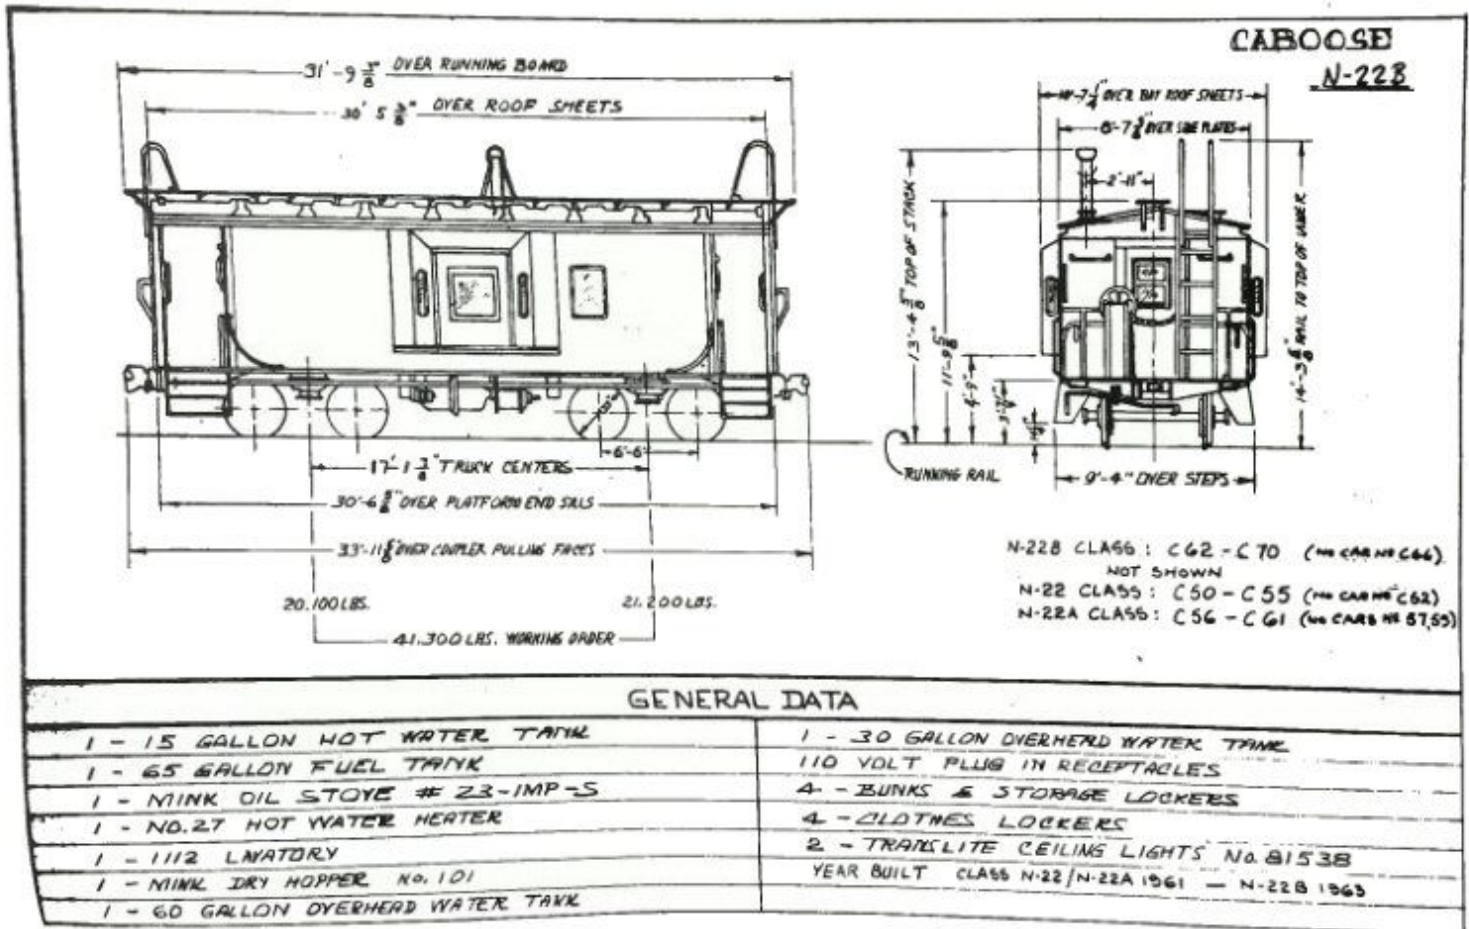 CABOOSE
N-22B
31'-9 7/8" OVER RUNNING BOARD
30' 5 3/8" OVER ROOF SHEETS
10'-7 1/4" OVER BAY ROOF SHEETS
OVER SIDE PLATES
2'-11"
13'-4 5/8" TOP OF STACK
11'-9 5/8"
4'-9"
RAIL TO TOP OF
6'-6"
17'-1 3/8" TRUCK CENTERS
RUNNING RAIL
9'-4" OVER STEPS
30'-6 5/8" OVER PLATFORM END SILLS
33'-11 5/8" OVER COUPLER PULLING FACES
N-22B CLASS: C62-C70 (NO CAR NO C66)
NOT SHOWN
N-22 CLASS: C50-C55 (NO CAR NO C52)
N-22A CLASS: C56-C61 (NO CARS NO 57,59)
20.100 LBS.
21.200 LBS.
41.300 LBS. WORKING ORDER
GENERAL DATA
1 - 15 GALLON HOT WATER TANK
1 - 65 GALLON FUEL TANK
1 - MINK OIL STOVE # 23-IMP-S
1 - NO.27 HOT WATER HEATER
1 - 1112 LAVATORY
1 - MINK DRY HOPPER NO. 101
1 - 60 GALLON OVERHEAD WATER TANK
1 - 30 GALLON OVERHEAD WATER TANK
110 VOLT PLUG IN RECEPTACLES
4 - BUNKS & STORAGE LOCKERS
4 - CLOTHES LOCKERS
2 - TRANSLITE CEILING LIGHTS NO. 81538
YEAR BUILT CLASS N-22/N-22A 1961 — N-22B 1963